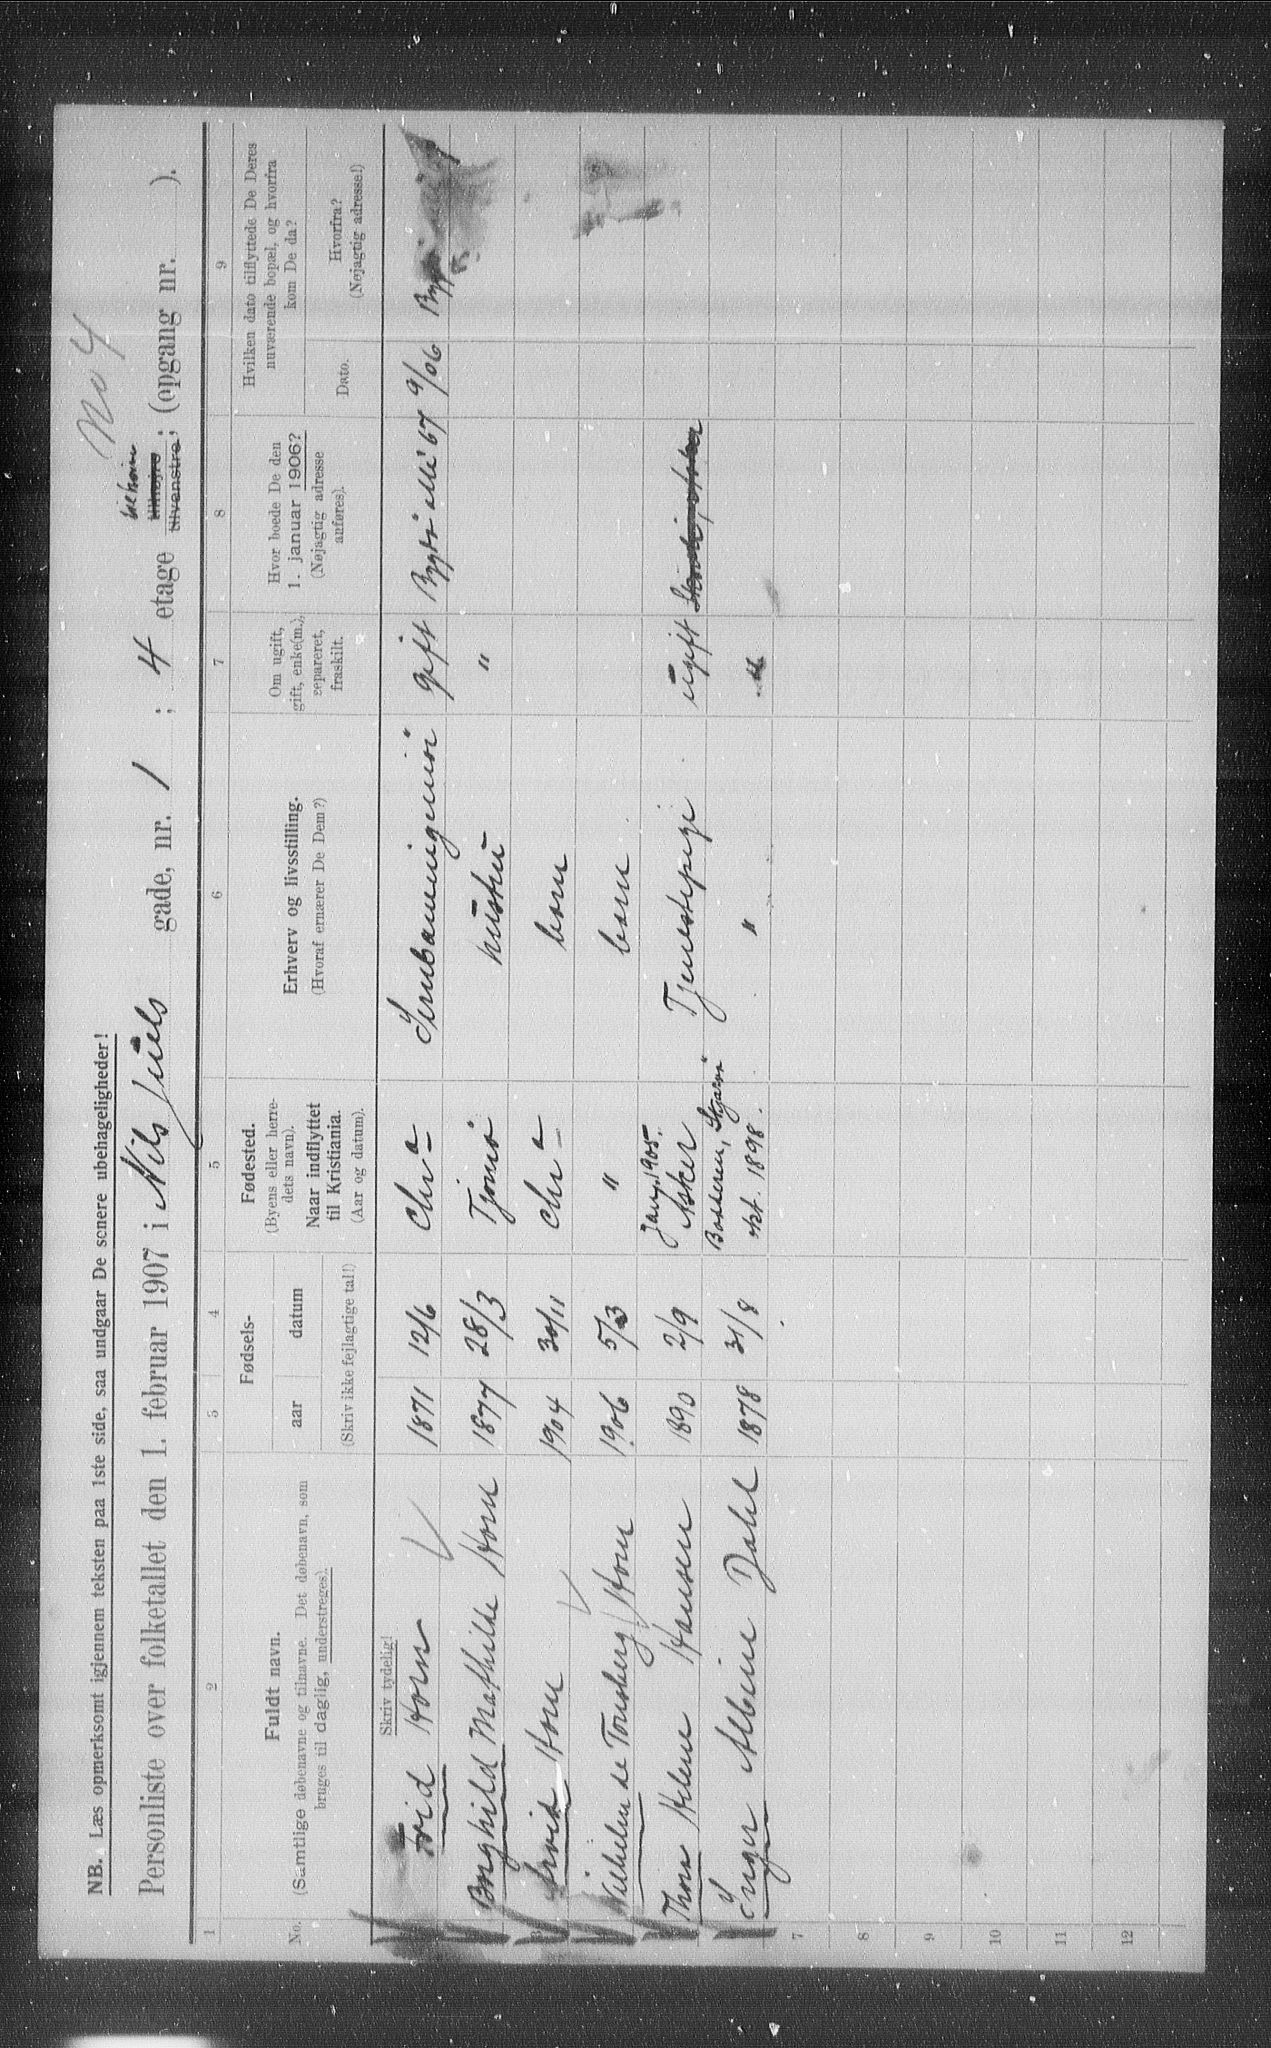 No 4
NB. Læs opmerksomt igjennem teksten paa 1ste side, saa undgaar De senere ubehageligheder!
Personliste over folketallet den 1. februar 1907 i Nils Juels gade, nr. 1 ; 4 etage tilhøire tilvenstre ; (opgang nr. ).
1 2 3 4 5 6 7 8 9
No.
Fuldt navn.
(Samtlige døbenavne og tilnavne. Det døbenavn, som
bruges til daglig, understreges).
Skriv tydelig!
Fødsels-
aar datum
(Skriv ikke fejlagtige tal!)
Fødested.
(Byens eller herre-
dets navn).
Naar indflyttet
til Kristiania.
(Aar og datum).
Erhverv og livsstilling.
(Hvoraf ernærer De Dem?)
Om ugift,
gift, enke(m.),
separeret,
fraskilt.
Hvor boede De den
1. januar 1906?
(Nøjagtig adresse
anføres).
Hvilken dato tilflyttede De Deres
nuværende bopæl, og hvorfra
kom De da?
Dato.
Hvorfra?
(Nøjagtig adresse!)
Horn 1871 12/6 Chr a gift Bygdø allé 67 9/06
Borghild Mathilde Horn 1877 28/3 Tjømø hustru "
Horn 1904 30/11 Chr a barn
Vilhelm de Tonsberg Horn 1906 5/3 " barn
Thora Helene Hansen 1890 2/9 Jan. 1905. Asker Tjenestepige ugift
Inger Albine Dahl 1878 31/8 okt. 1898. "
7
8
9
10
11
12